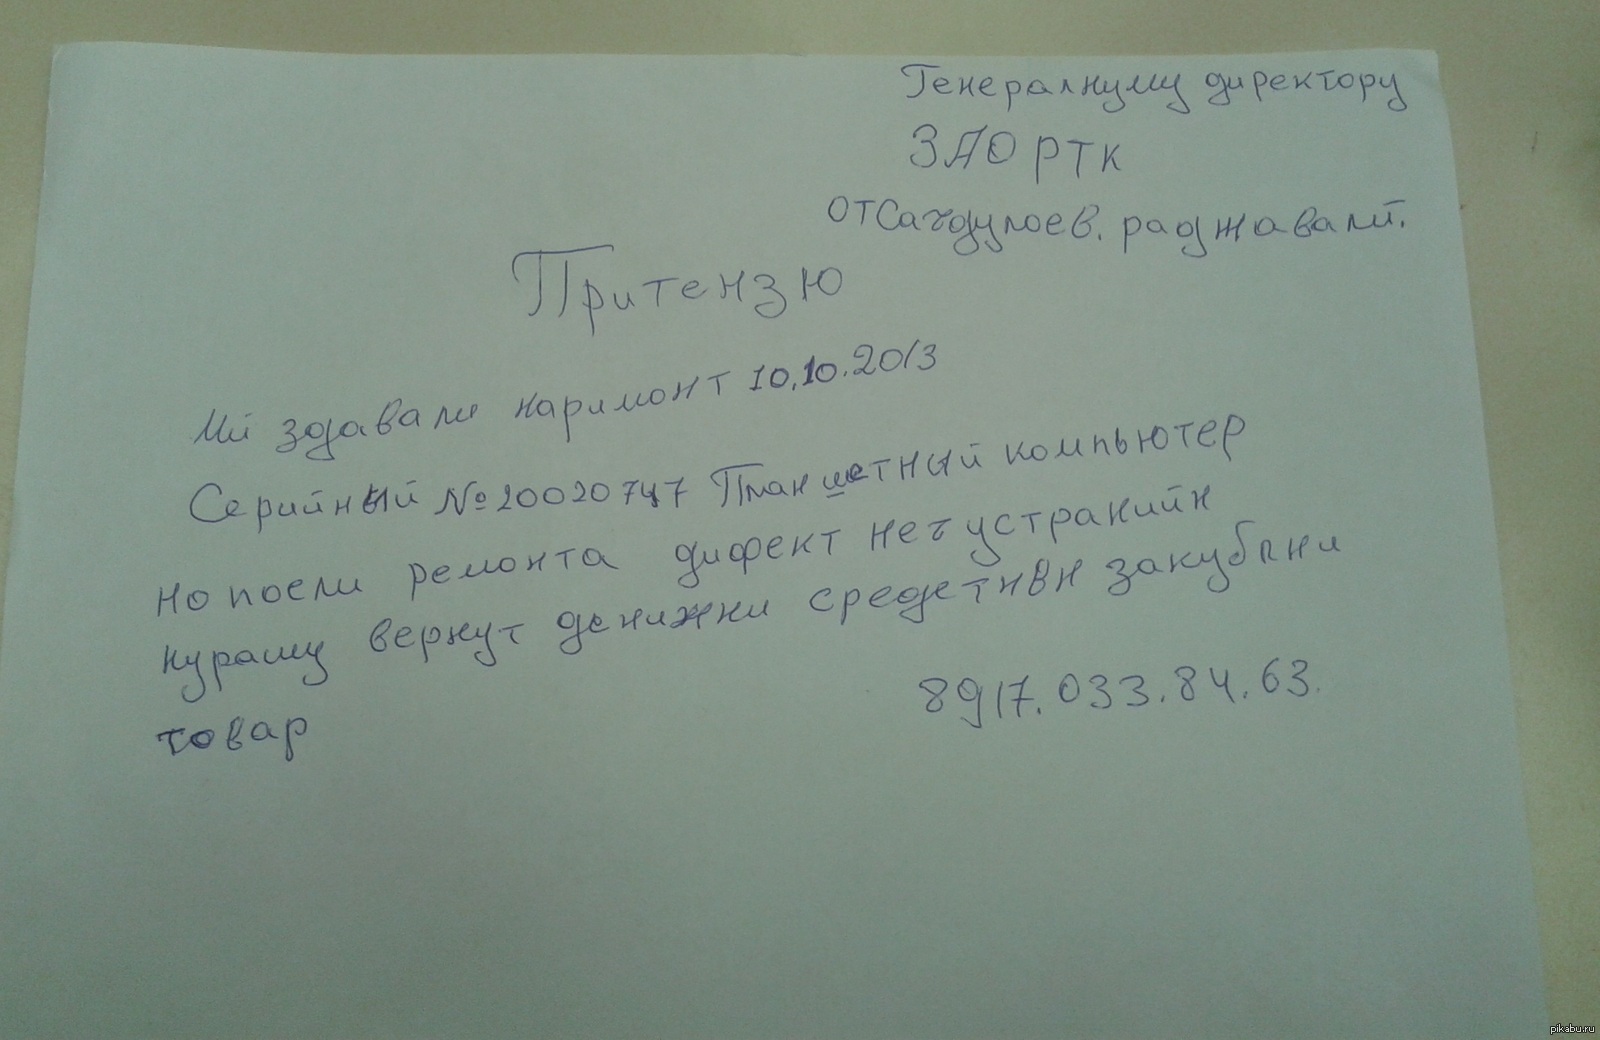 Генералнуму директору
ЗАО РТК
от Сагдулоев. раджавали.
Притензю
Мй здавали наримонт 10.10.2013
Серийный № 20020747 Планшетный компьютер
но посли ремонта дифект нет устранийн
нурашу вернут денижни средетнвн закубпни
товар
8917.033.84.63.
pikabu.ru